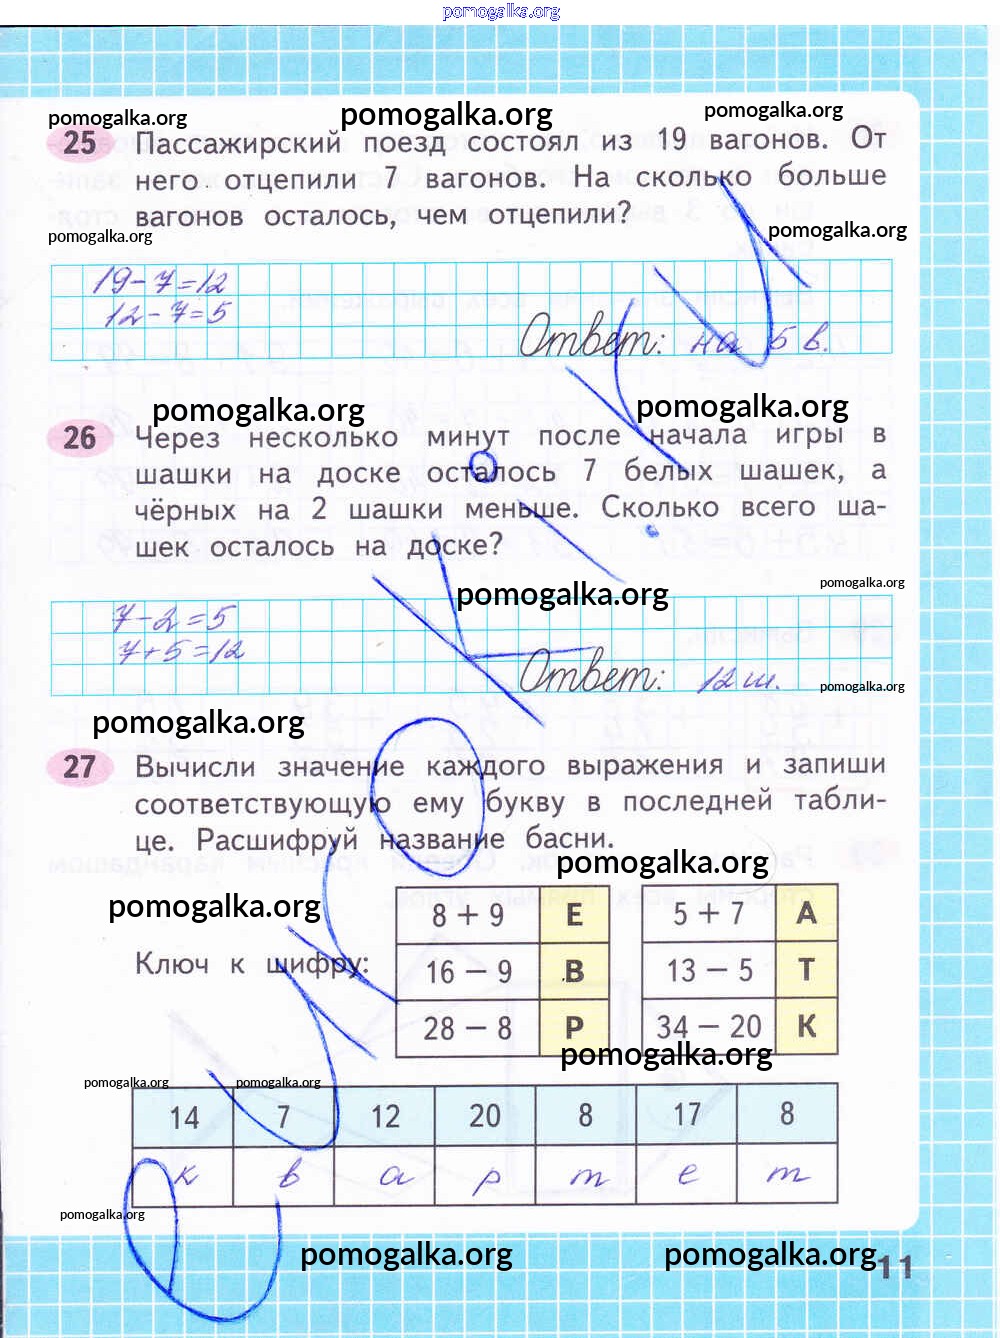 pomogalka.org
pomogalka.org pomogalka.org pomogalka.org
25 Пассажирский поезд состоял из 19 вагонов. От
него отцепили 7 вагонов. На сколько больше
вагонов осталось, чем отцепили?
pomogalka.org pomogalka.org
19-7=12
12-7=5
Ответ: на 5 в.
pomogalka.org pomogalka.org
26 Через несколько минут после начала игры в
шашки на доске осталось 7 белых шашек, а
чёрных на 2 шашки меньше. Сколько всего ша-
шек осталось на доске?
pomogalka.org pomogalka.org
7-2=5
7+5=12
Ответ: 12 ш.
pomogalka.org
pomogalka.org
27 Вычисли значение каждого выражения и запиши
соответствующую ему букву в последней табли-
це. Расшифруй название басни.
pomogalka.org
pomogalka.org
Ключ к шифру:
8 + 9 Е 5 + 7 А
16 − 9 В 13 − 5 Т
28 − 8 Р 34 − 20 К
pomogalka.org
pomogalka.org pomogalka.org
14 7 12 20 8 17 8
к в а р т е т
pomogalka.org
pomogalka.org pomogalka.org
11